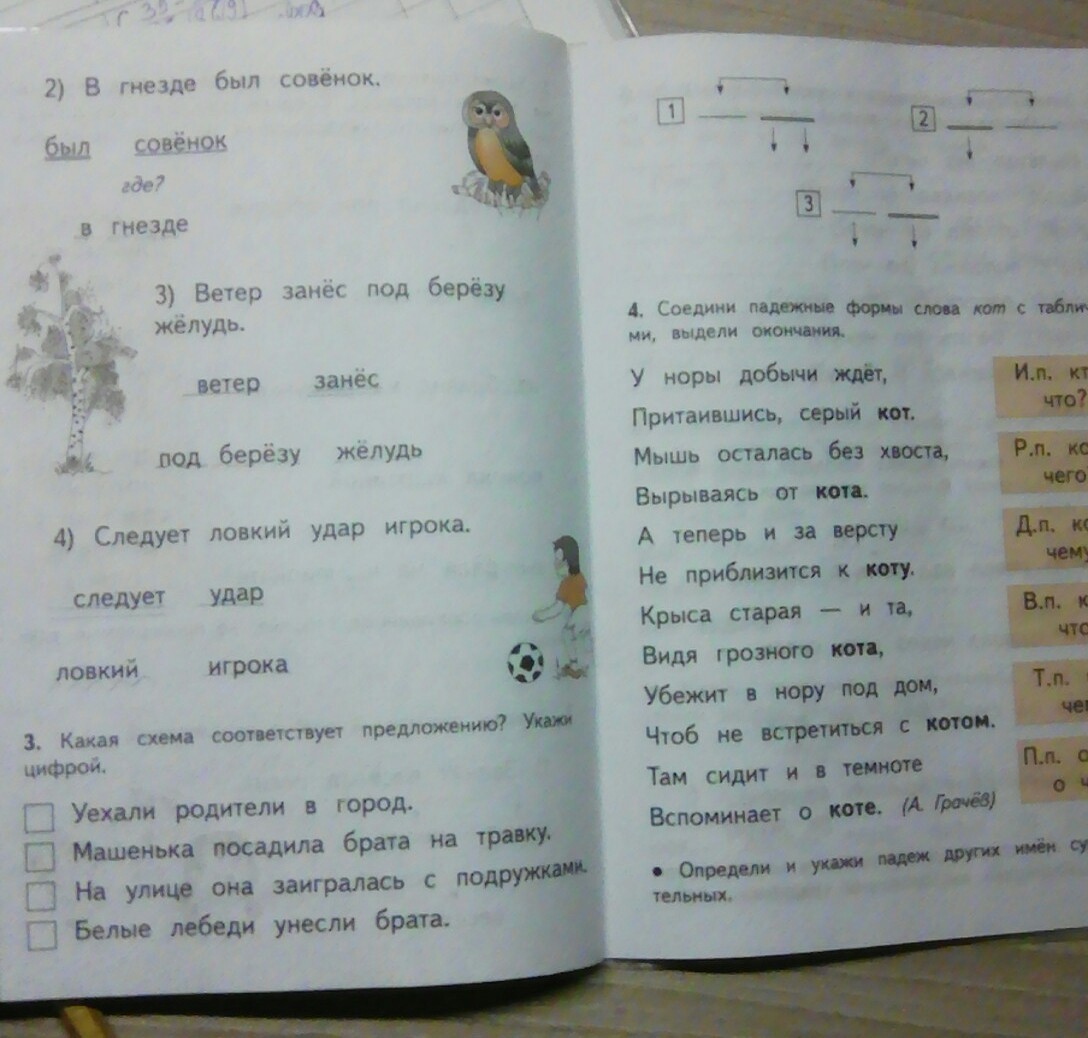 2) В гнезде был совёнок.
был совёнок
где?
в гнезде
3) Ветер занёс под берёзу
жёлудь.
ветер занёс
под берёзу жёлудь
4) Следует ловкий удар игрока.
следует удар
ловкий игрока
3. Какая схема соответствует предложению? Укажи
цифрой.
Уехали родители в город.
Машенька посадила брата на травку.
На улице она заигралась с подружками.
Белые лебеди унесли брата.
1
2
3
4. Соедини падежные формы слова кот с
ми, выдели окончания.
У норы добычи ждёт,
Притаившись, серый кот.
Мышь осталась без хвоста,
Вырываясь от кота.
А теперь и за версту
Не приблизится к коту.
Крыса старая — и та,
Видя грозного кота,
Убежит в нору под дом,
Чтоб не встретиться с котом.
Там сидит и в темноте
Вспоминает о коте. (А. Грачёв)
И.п.
что?
Р.п.
чего
Д.п.
В.п.
Т.п.
П.п.
о
• Определи и укажи падеж других имён
тельных.